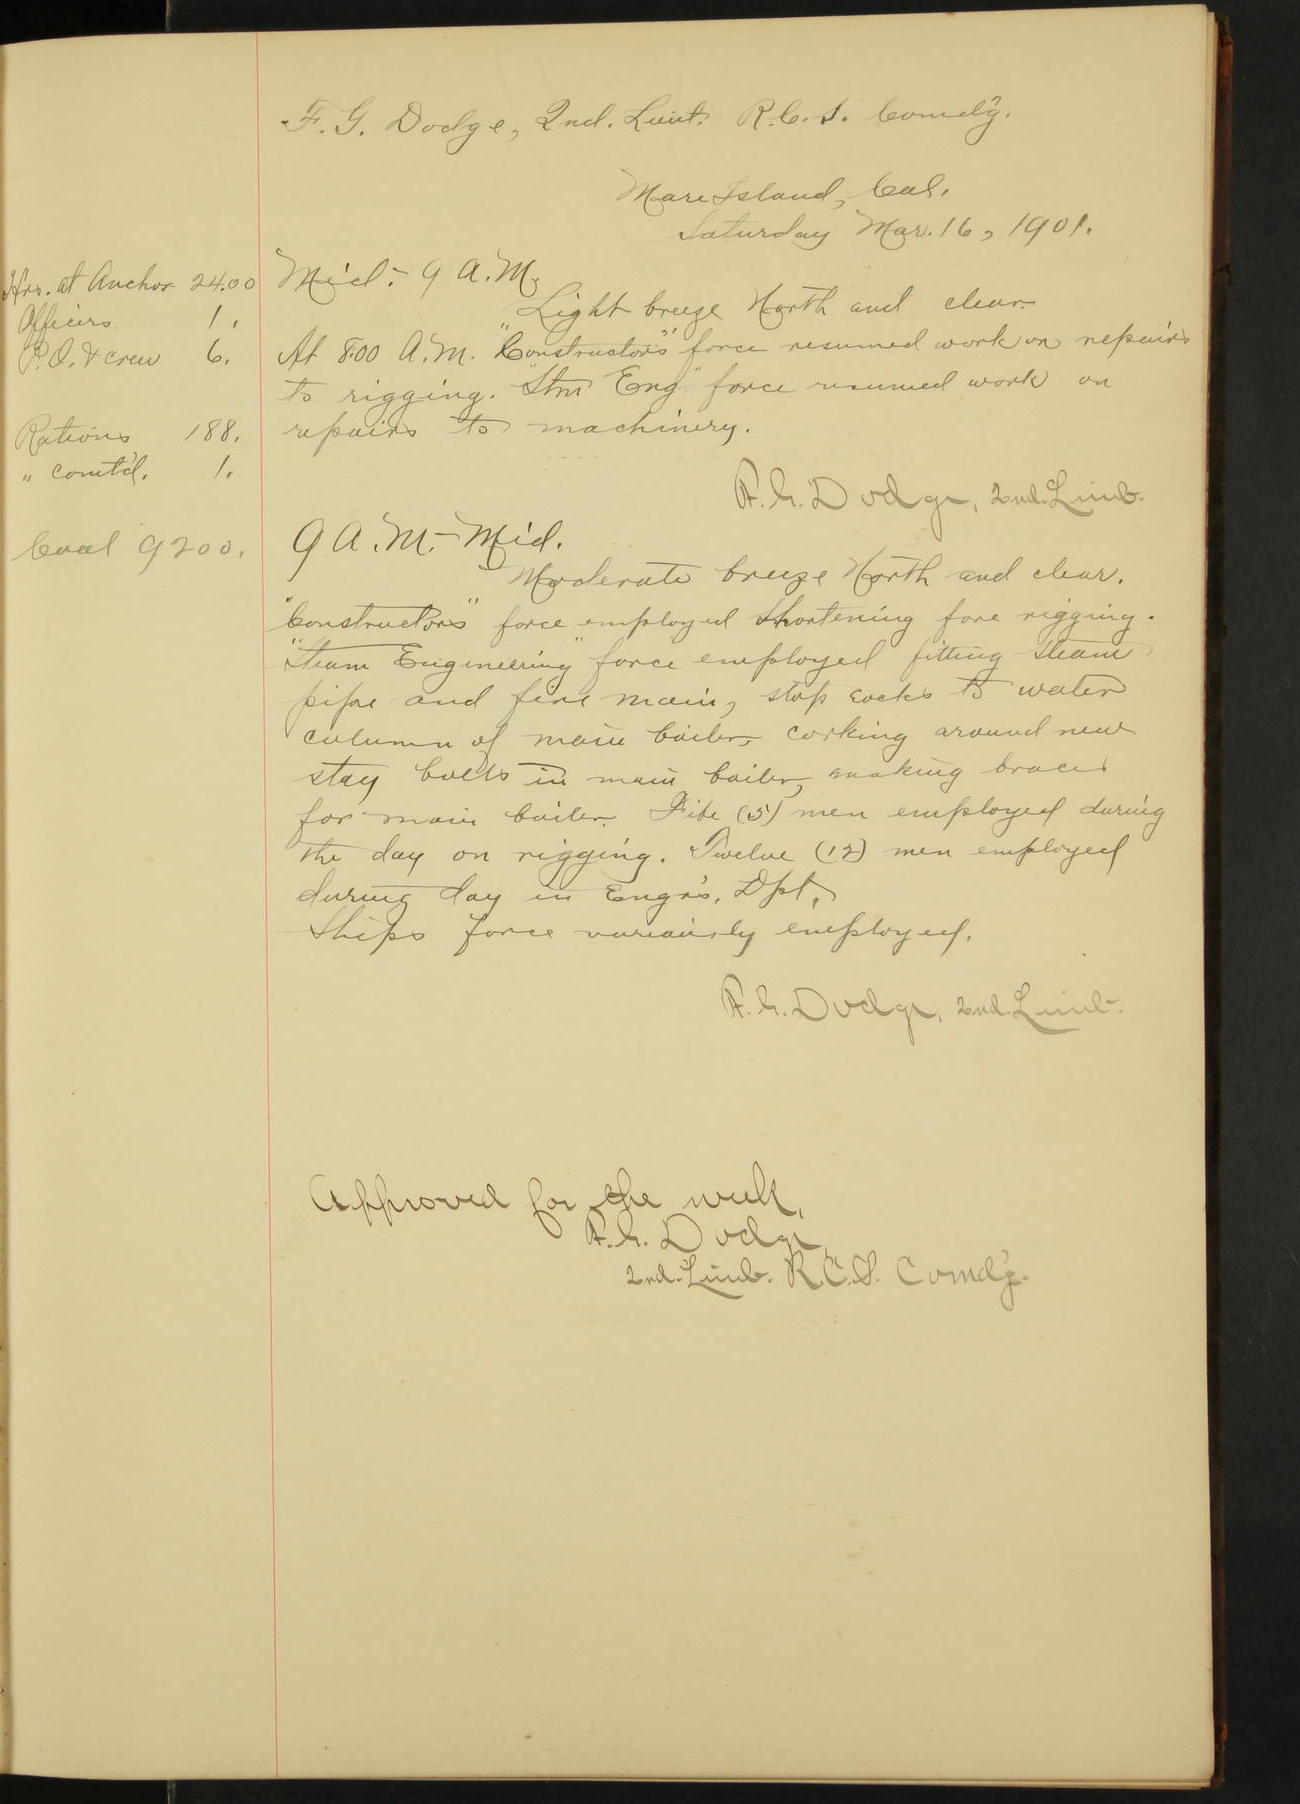 F. G. Dodge, 2nd. Lieut. R.C.S. Comd'g.
Mare Island, Cal.
Saturday Mar. 16, 1901.
Hrs. at Anchor 24.00
Officers 1.
P.O. & crew 6.
Rations 188.
" comt'd. 1.
Coal 9200.
Mid. - 9 A.M.
Light breeze North and clear.
At 8:00 A.M. "Constructors" force resumed work on repairs
to rigging. "Stm Eng" force resumed work on
repairs to machinery.
F. G. Dodge, 2nd. Lieut.
9 A.M. - Mid.
Moderate breeze North and clear.
"Constructors" force employed shortening fore rigging.
"Steam Engineering" force employed fitting steam
pipe and fire main, stop cocks to water
column of main boiler, corking around new
stay bolts in main boiler, making braces
for main boiler. Five (5) men employed during
the day on rigging. Twelve (12) men employed
during day in Engr's. Dpt.
Ships force variously employed.
F. G. Dodge, 2nd. Lieut.
Approved for the week,
F. G. Dodge
2nd. Lieut. R.C.S. Comd'g.